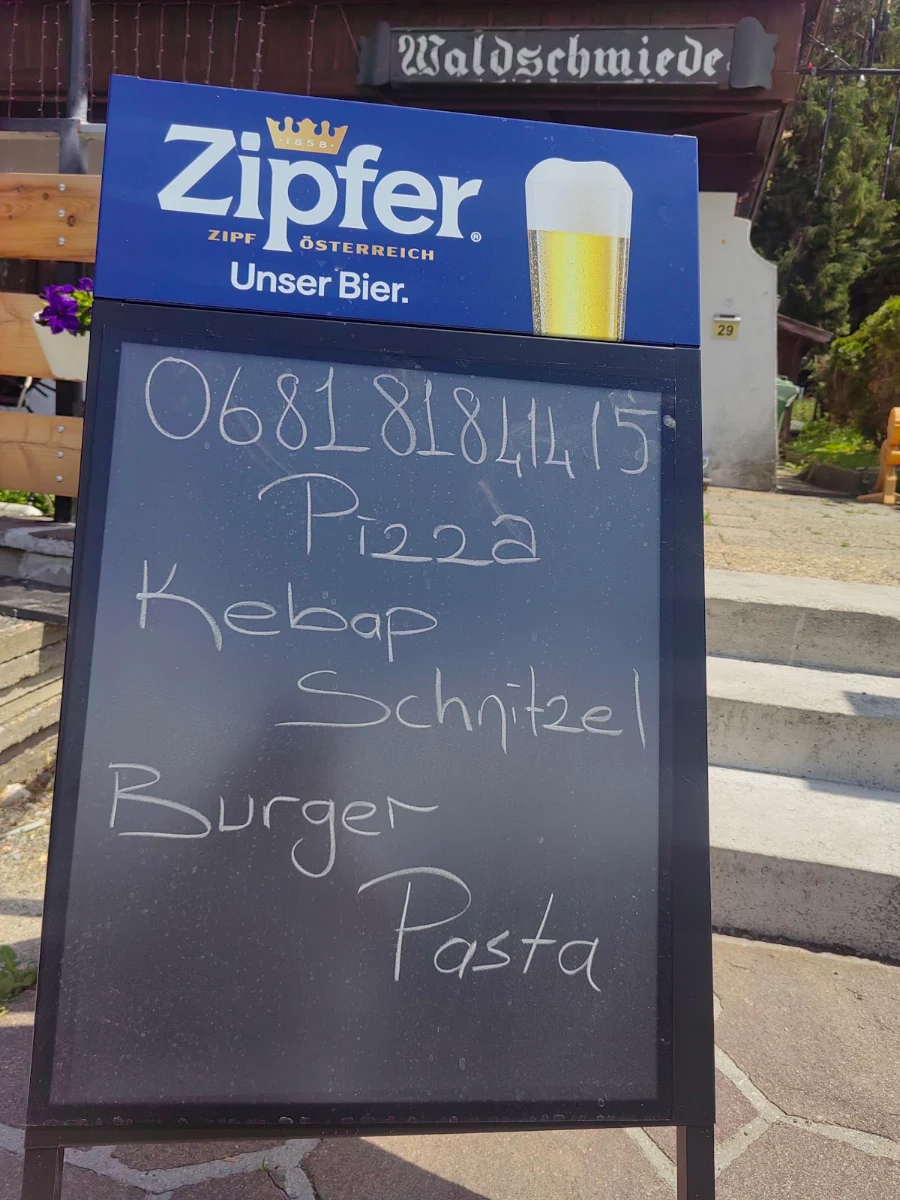 Waldschmiede
1858
Zipfer®
ZIPF ÖSTERREICH
Unser Bier.
29
0681 81841415
Pizza
Kebap
Schnitzel
Burger
Pasta